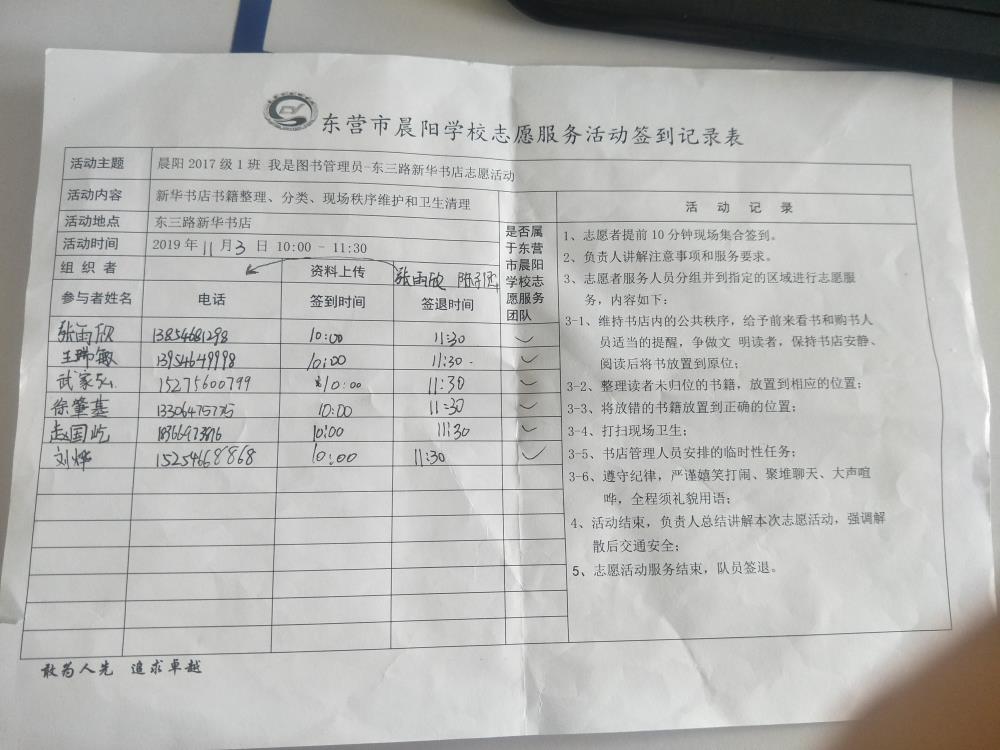 东营市晨阳学校志愿服务活动签到记录表
活动主题 晨阳 2017 级 1 班 我是图书管理员-东三路新华书店志愿活动
活动内容 新华书店书籍整理、分类、现场秩序维护和卫生清理
活动地点 东三路新华书店
活动时间 2019 年 11 月 3 日 10:00 - 11:30
组织者 资料上传 张雨欣
参与者姓名 电话 签到时间 签退时间 是否属于东营市晨阳学校志愿服务团队
张雨欣 13854681298 10:00 11:30 ✓
王瑞敏 13954649998 10:00 11:30 ✓
武家 15275600799 10:00 11:30 ✓
徐肇基 13306475775 10:00 11:30 ✓
赵国屹 10:00 11:30 ✓
刘烨 15254668868 10:00 11:30 ✓
活 动 记 录
1、志愿者提前 10 分钟现场集合签到。
2、负责人讲解注意事项和服务要求。
3、志愿者服务人员分组并到指定的区域进行志愿服
务，内容如下：
3-1、维持书店内的公共秩序，给予前来看书和购书人
员适当的提醒，争做文 明读者，保持书店安静、
阅读后将书放置到原位；
3-2、整理读者未归位的书籍，放置到相应的位置；
3-3、将放错的书籍放置到正确的位置；
3-4、打扫现场卫生；
3-5、书店管理人员安排的临时性任务；
3-6、遵守纪律，严谨嬉笑打闹、聚堆聊天、大声喧
哗，全程须礼貌用语；
4、活动结束，负责人总结讲解本次志愿活动，强调解
散后交通安全；
5、志愿活动服务结束，队员签退。
敢为人先 追求卓越